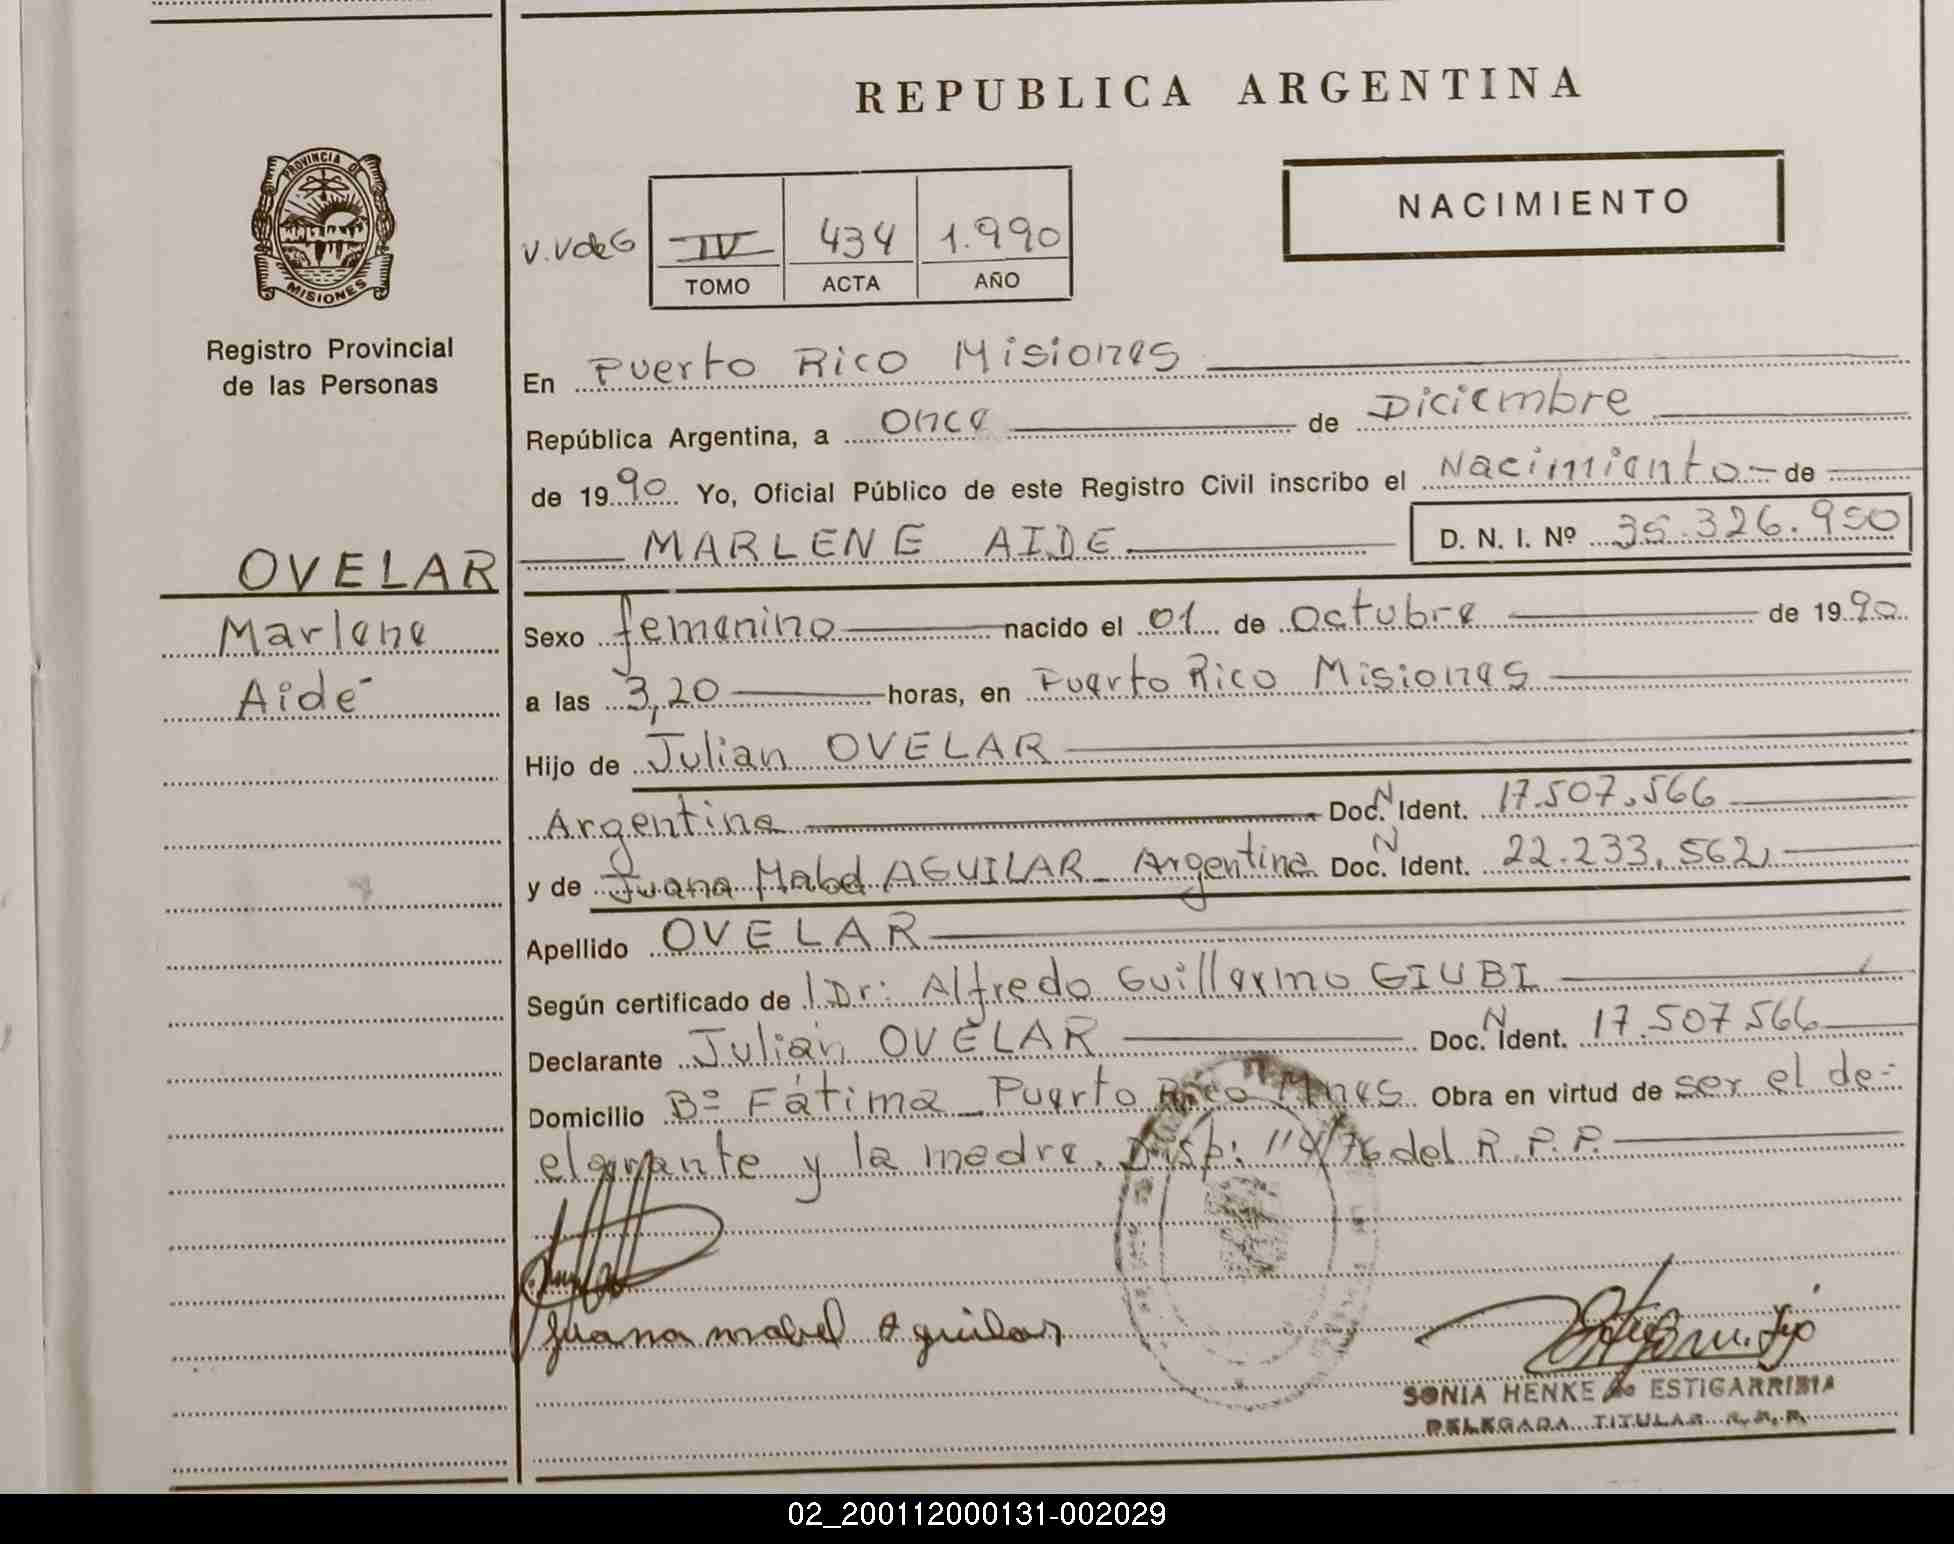 REPUBLICA ARGENTINA
PROVINCIA DE
MISIONES
Registro Provincial
de las Personas
NACIMIENTO
V.VdeG IV 434 1.990
TOMO ACTA AÑO
En Puerto Rico Misiones
República Argentina, a once de Diciembre
de 1990 Yo, Oficial Público de este Registro Civil inscribo el Nacimiento de
MARLENE AIDE D. N. I. Nº 35.326.950
OVELAR
Marlene
Aidé
Sexo femenino nacido el 01 de octubre de 1990
a las 3,20 horas, en Puerto Rico Misiones
Hijo de Julian OVELAR
Argentina Doc. N Ident. 17.507.566
y de Juana Mabel AGUILAR - Argentina Doc. N Ident. 22.233.562
Apellido OVELAR
Según certificado de Dr: Alfredo Guillermo GIUBI
Declarante Julián OVELAR Doc. N Ident. 17.507.566
Domicilio Bº Fátima - Puerto Rico Mnes Obra en virtud de ser el de-
elarante y la madre. Disp: 114/76 del R.P.P.
Juana mabel Aguilar
SONIA HENKE de ESTIGARRIBIA
DELEGADA TITULAR R.P.P.
02_200112000131-002029